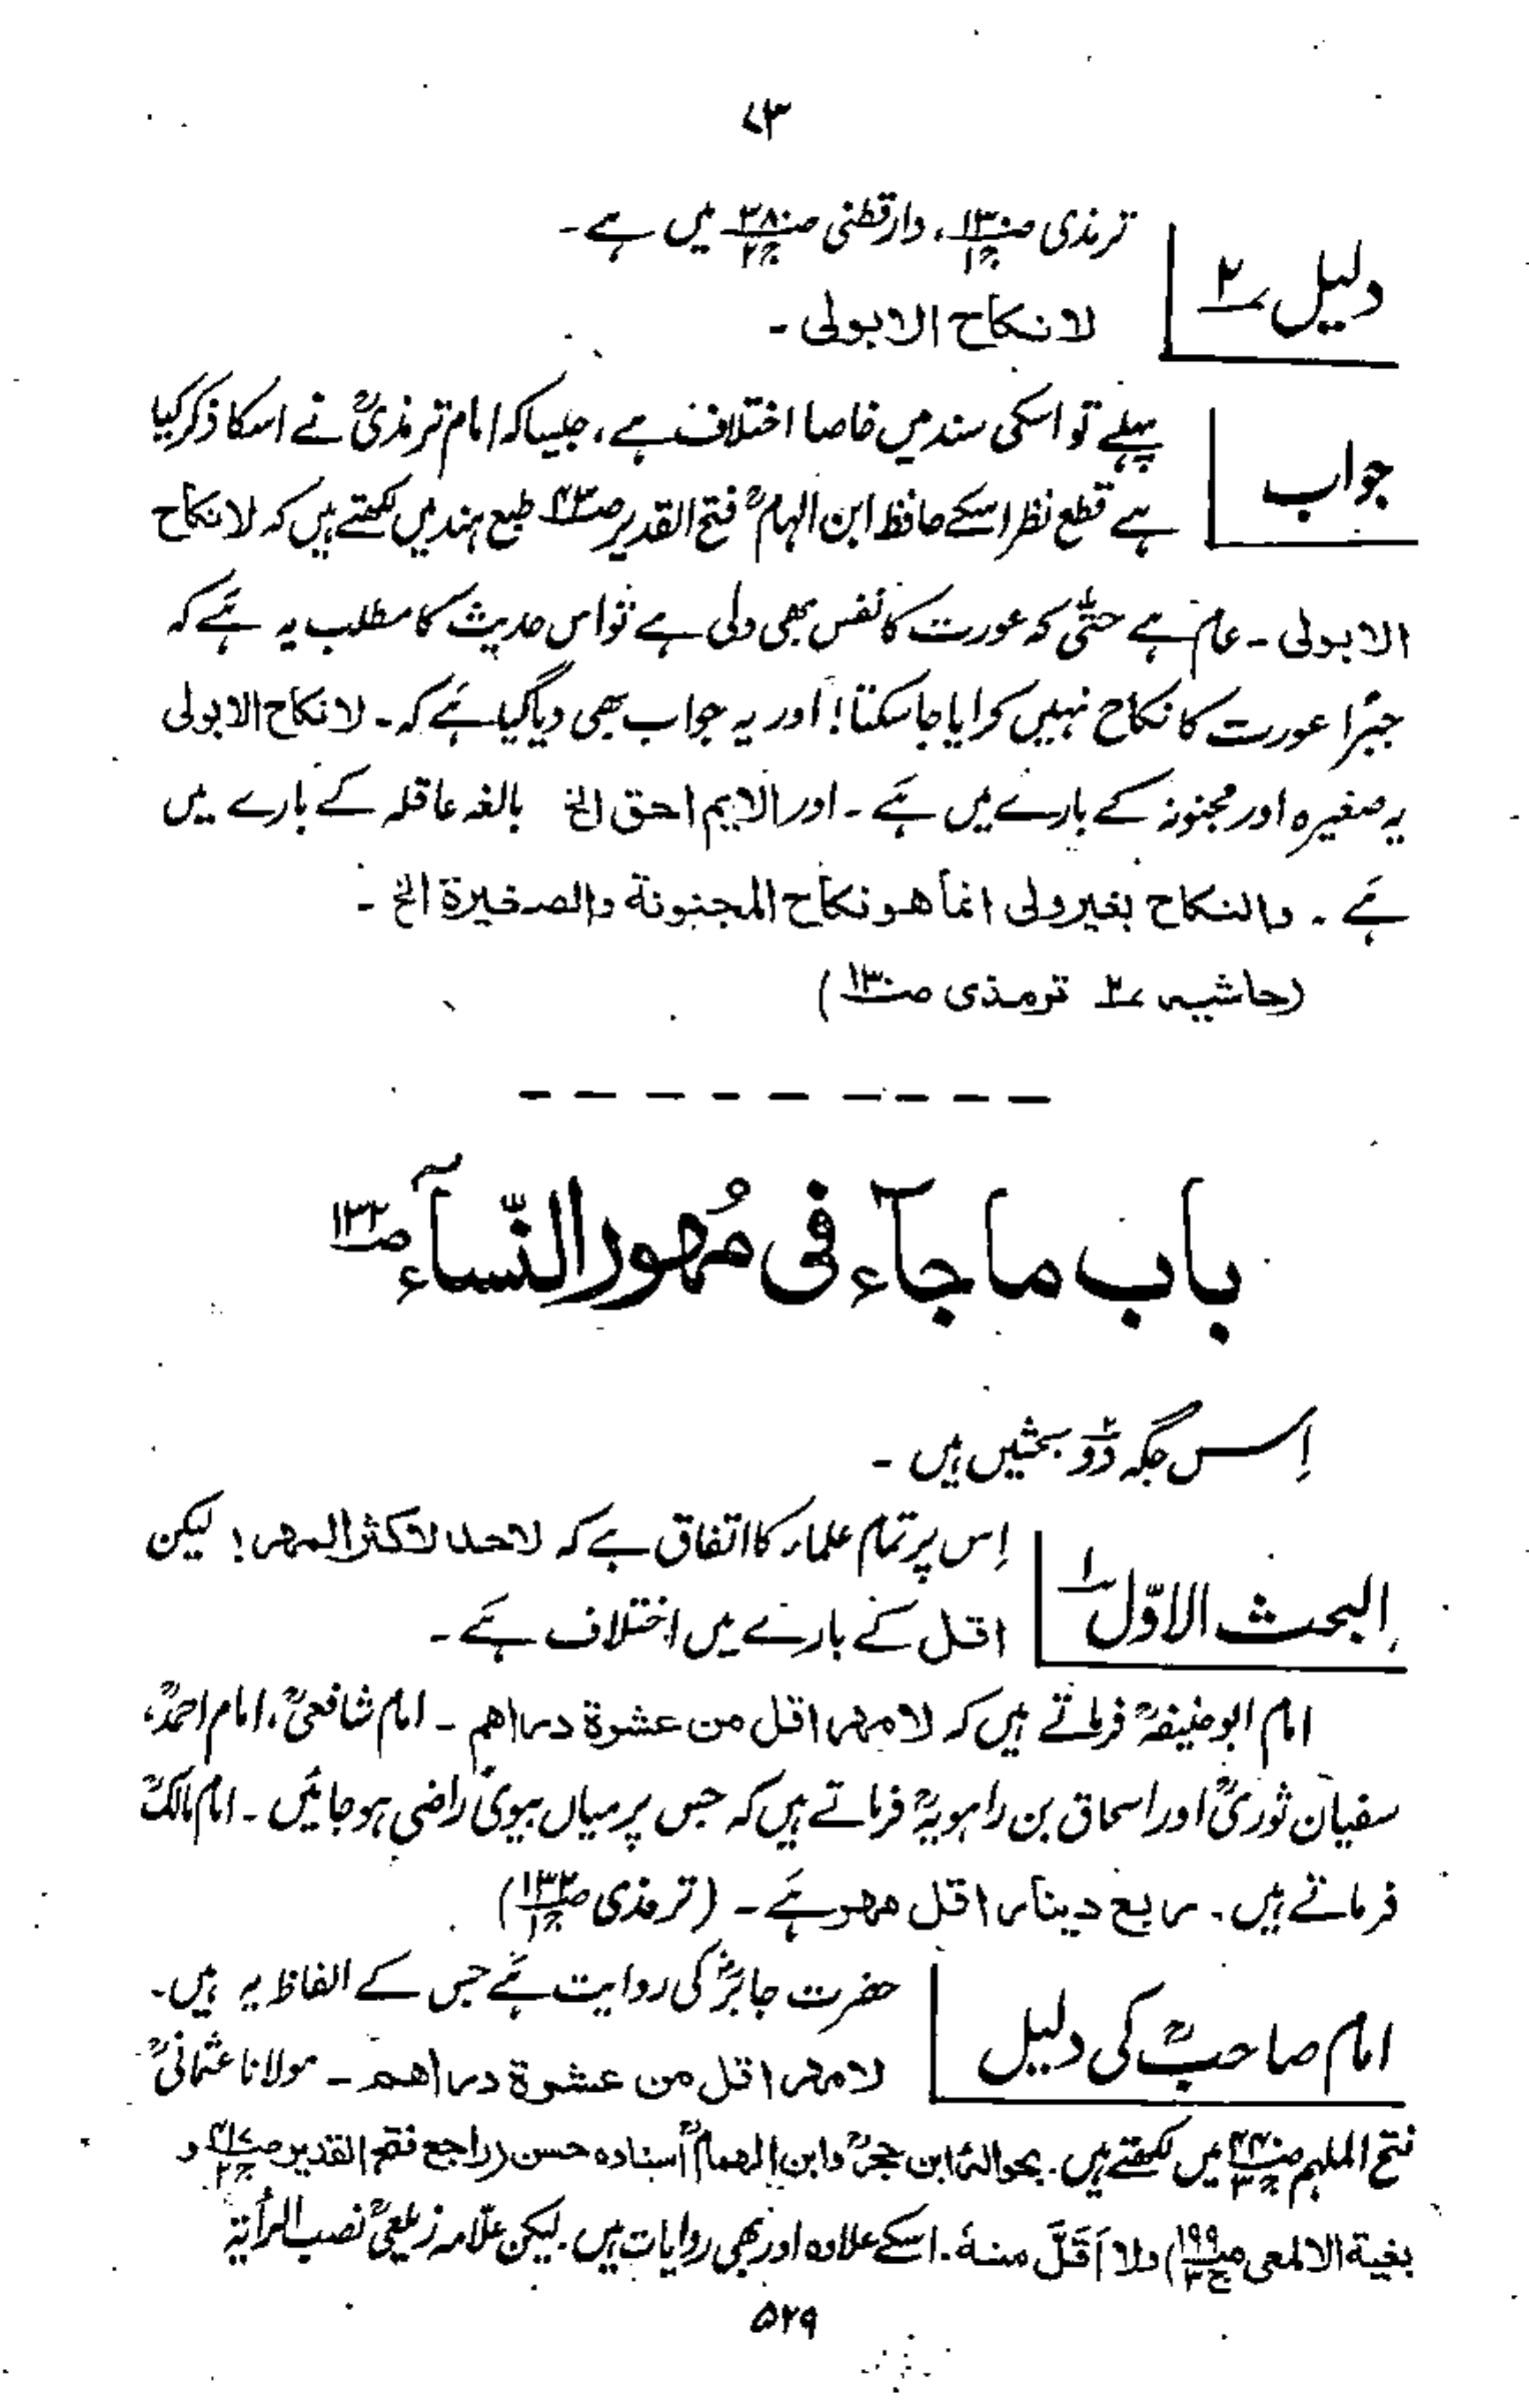 ۷۳
ترمذی ص۱۳۰ ج۱، دارقطنی ص۳۸۰ ج۲ میں ہے۔
دلیل ۲
لا نکاح الا بولی۔
جواب
پہلے تو اسکی سند میں خاصا اختلاف ہے، جیسا کہ امام ترمذیؒ نے اسکا ذکر کیا
ہے قطع نظر اسکے حافظ ابن الہمامؒ فتح القدیر طبع ہند میں لکھتے ہیں کہ لا نکاح
الا بولی۔ عام ہے حتّٰی کہ عورت کا نفس بھی ولی ہے تو اس حدیث کا مطلب یہ ہے کہ
جبرًا عورت کا نکاح نہیں کرایا جا سکتا! اور یہ جواب بھی دیا گیا ہے کہ۔ لا نکاح الا بولی
یہ صغیرہ اور مجنونہ کے بارے میں ہے۔ اور الایم احق الخ بالغہ عاقلہ کے بارے میں
ہے۔ والنکاح بغیر ولی انما ھو نکاح المجنونۃ والصغیرۃ الخ۔
(حاشیہ ۲ ترمذی ص۱۳۰)
باب ما جآء فی مُھور النّسآء ص۱۳۲
اِس جگہ دو۲ بحثیں ہیں۔
البحث الاوّل ۱
اِس پر تمام علماء کا اتفاق ہے کہ لا حد لاکثر المھر! لیکن
اقل کے بارے میں اختلاف ہے۔
امام ابو حنیفہؒ فرماتے ہیں کہ لا مھر اقل من عشرۃ دراھم۔ امام شافعیؒ، امام احمدؒ،
سفیان ثوریؒ اور اسحاق بن راہویہؒ فرماتے ہیں کہ جس پر میاں بیوی راضی ہو جائیں۔ امام مالکؒ
فرماتے ہیں۔ ربع دینار اقل مھر ہے۔ (ترمذی ص۱۳۲ ج۱)
امام صاحبؒ کی دلیل
حضرت جابرؓ کی روایت ہے جس کے الفاظ یہ ہیں۔
لا مھر اقل من عشرۃ دراھم۔ مولانا عثمانیؒ
فتح الملہم ج۳ میں لکھتے ہیں۔ بحوالۂ ابن حجرؒ وابن الھمامؒ اسنادہ حسن (راجع فتح القدیر ج۲ و
بغیۃ الالمعی ص۱۹۹ ج۳) ولا اَقَلَّ منہُ۔ اسکے علاوہ اور بھی روایات ہیں۔ لیکن علّامہ زیلعیؒ نصب الرأیۃ
۵۲۹